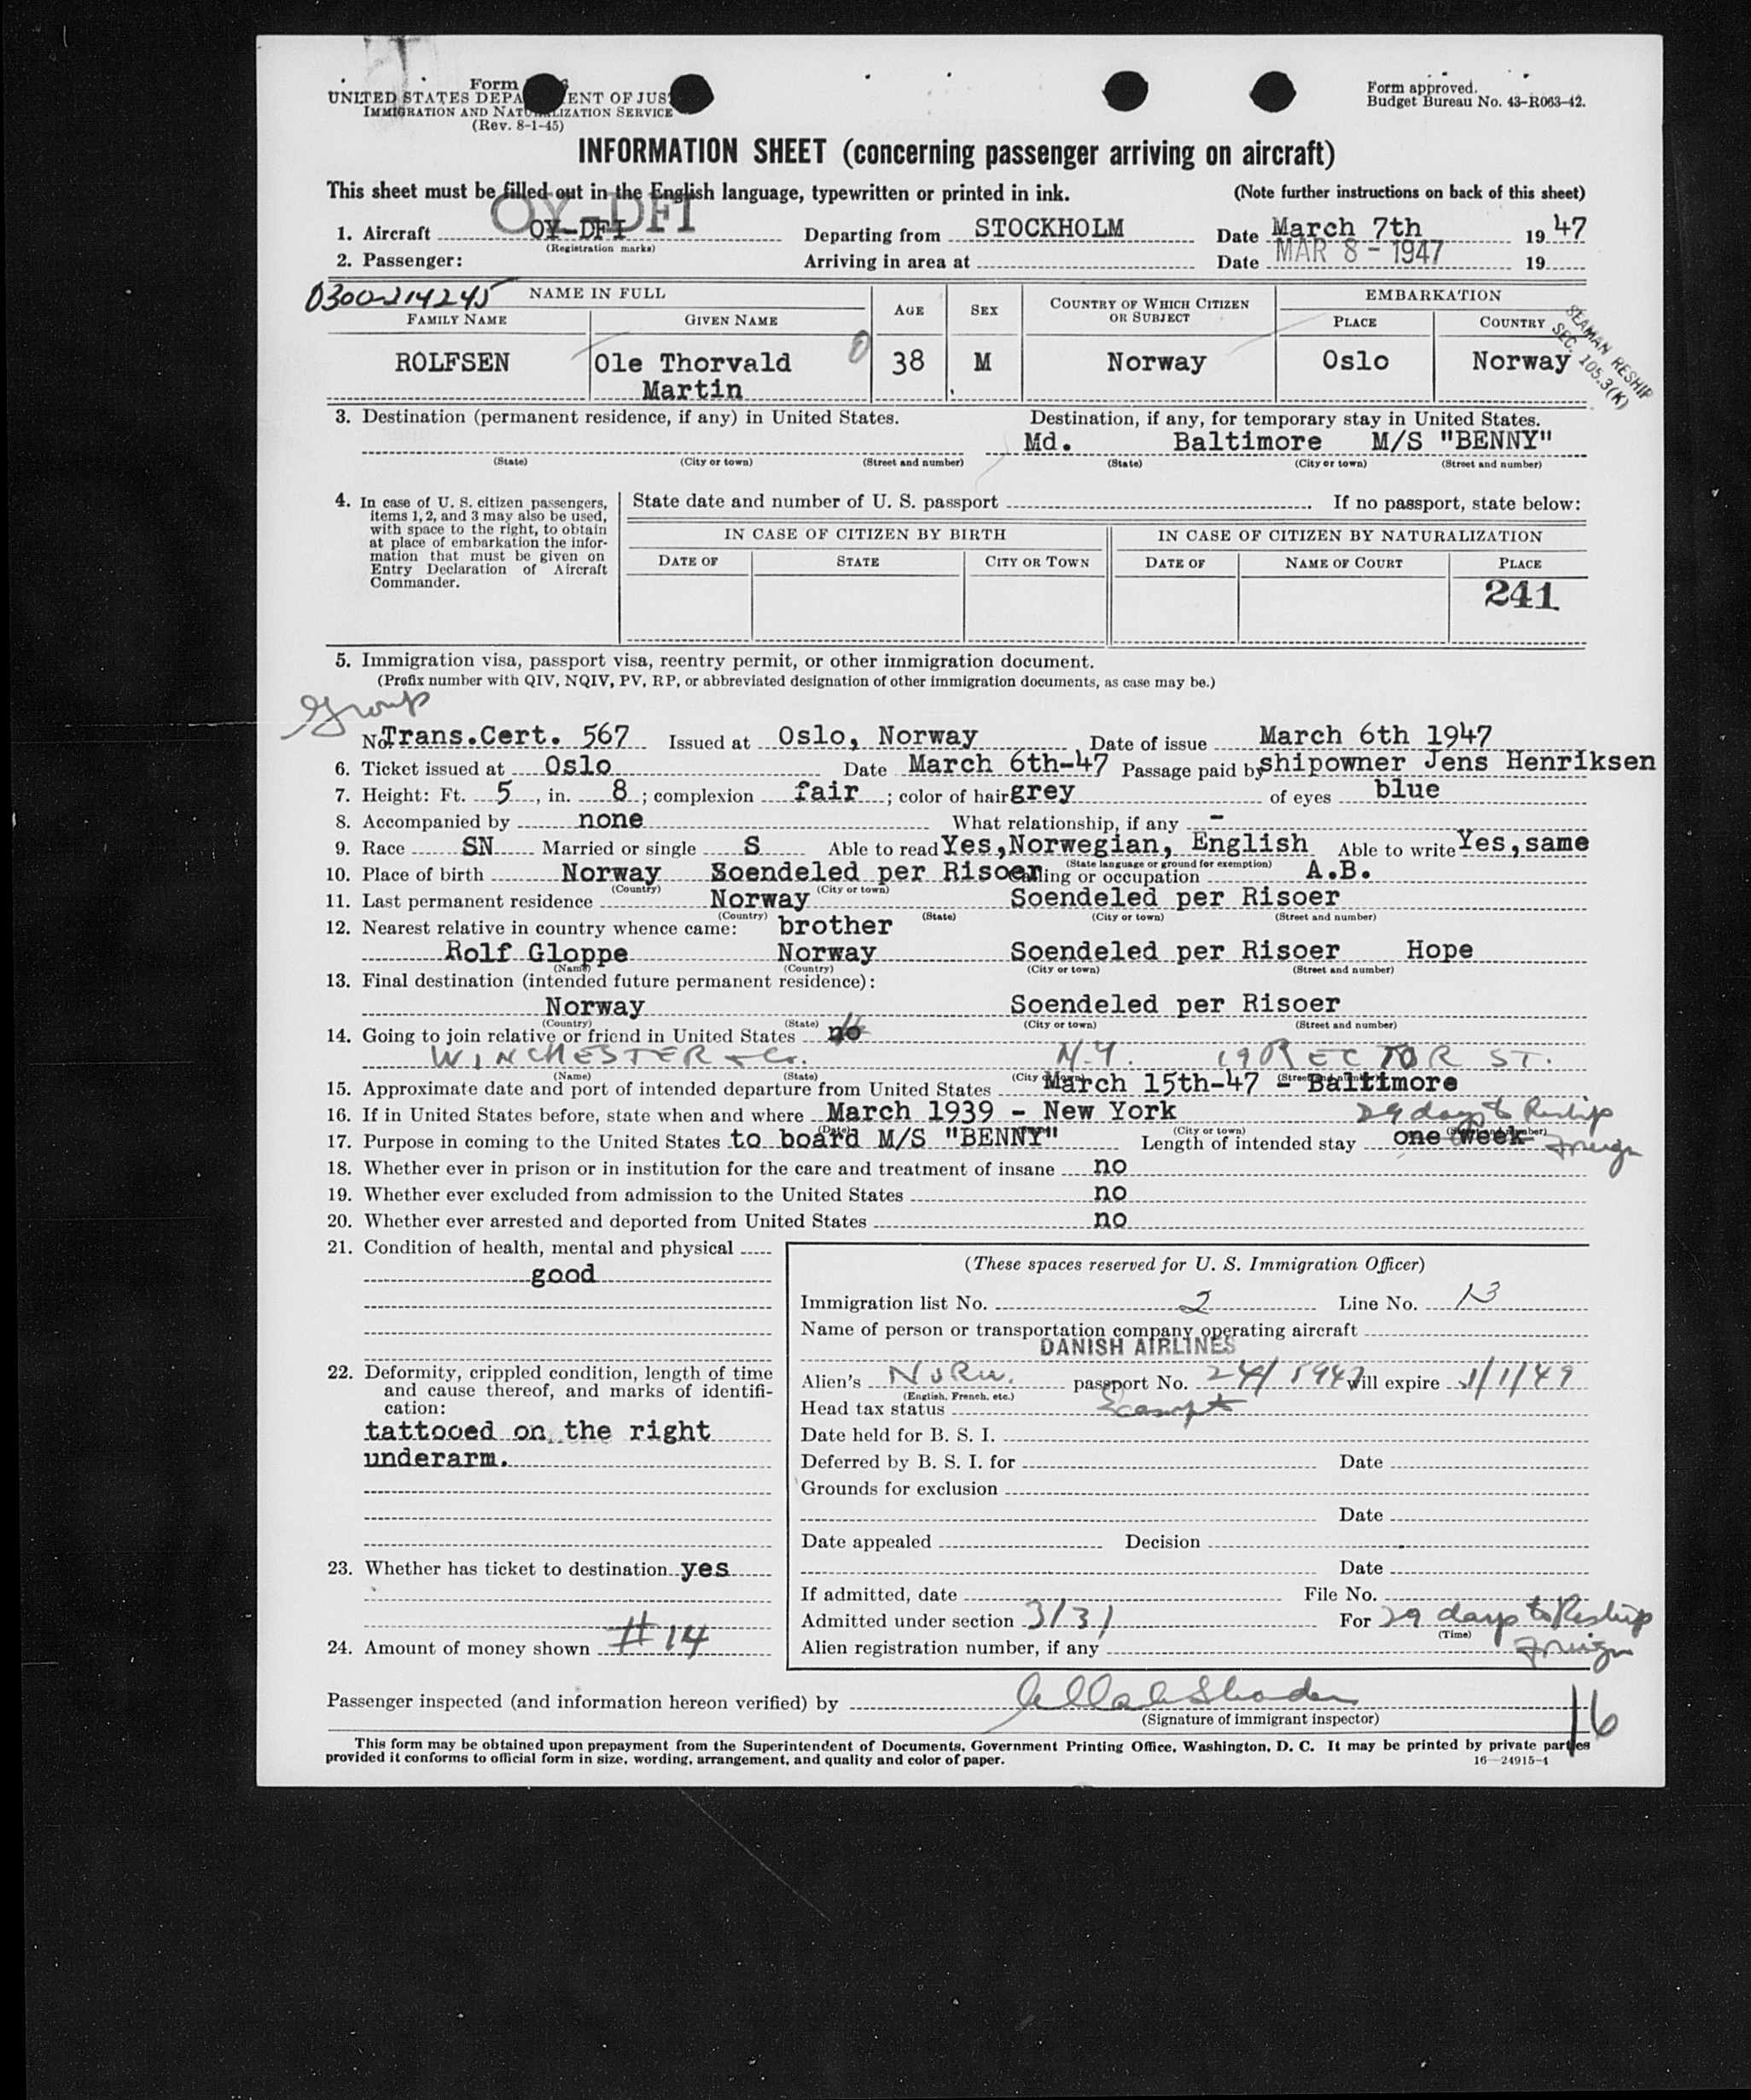 Form
UNITED STATES DEPA ENT OF JUS
IMMIGRATION AND NATURALIZATION SERVICE
(Rev. 8-1-45)
Form approved.
Budget Bureau No. 43-R063-42.
INFORMATION SHEET (concerning passenger arriving on aircraft)
This sheet must be filled out in the English language, typewritten or printed in ink. (Note further instructions on back of this sheet)
OY-DFI
1. Aircraft OY-DFI Departing from STOCKHOLM Date March 7th 19 47
(Registration marks)
2. Passenger: Arriving in area at Date MAR 8 - 1947 19
0300-214245 NAME IN FULL AGE SEX COUNTRY OF WHICH CITIZEN OR SUBJECT EMBARKATION
FAMILY NAME GIVEN NAME PLACE COUNTRY
SEAMAN RESHIP
SEC. 105.3(K)
ROLFSEN Ole Thorvald 38 M Norway Oslo Norway
Martin
3. Destination (permanent residence, if any) in United States. Destination, if any, for temporary stay in United States.
Md. Baltimore M/S "BENNY"
(State) (City or town) (Street and number) (State) (City or town) (Street and number)
4. In case of U. S. citizen passengers,
items 1, 2, and 3 may also be used,
with space to the right, to obtain
at place of embarkation the infor-
mation that must be given on
Entry Declaration of Aircraft
Commander.
State date and number of U. S. passport If no passport, state below:
IN CASE OF CITIZEN BY BIRTH IN CASE OF CITIZEN BY NATURALIZATION
DATE OF STATE CITY OR TOWN DATE OF NAME OF COURT PLACE
241
5. Immigration visa, passport visa, reentry permit, or other immigration document.
(Prefix number with QIV, NQIV, PV, RP, or abbreviated designation of other immigration documents, as case may be.)
Group
No Trans.Cert. 567 Issued at Oslo, Norway Date of issue March 6th 1947
6. Ticket issued at Oslo Date March 6th-47 Passage paid by shipowner Jens Henriksen
7. Height: Ft. 5, in. 8; complexion fair; color of hair grey of eyes blue
8. Accompanied by none What relationship, if any -
9. Race SN Married or single S Able to read Yes, Norwegian, English Able to write Yes, same
(State language or ground for exemption)
10. Place of birth Norway Soendeled per Risoer Calling or occupation A.B.
(Country) (City or town)
11. Last permanent residence Norway Soendeled per Risoer
(Country) (State) (City or town) (Street and number)
12. Nearest relative in country whence came: brother
Rolf Gloppe Norway Soendeled per Risoer Hope
(Name) (Country) (City or town) (Street and number)
13. Final destination (intended future permanent residence):
Norway Soendeled per Risoer
(Country) (State) (City or town) (Street and number)
14. Going to join relative or friend in United States no
WINCHESTER + Co. N.Y. 19 RECTOR ST.
(Name) (State) (City or town) (Street and number)
15. Approximate date and port of intended departure from United States March 15th-47 - Baltimore
16. If in United States before, state when and where March 1939 - New York
(Date) (City or town) (Street and number)
29 days to Reship
Foreign
17. Purpose in coming to the United States to board M/S "BENNY" Length of intended stay one week
18. Whether ever in prison or in institution for the care and treatment of insane no
19. Whether ever excluded from admission to the United States no
20. Whether ever arrested and deported from United States no
21. Condition of health, mental and physical
good
22. Deformity, crippled condition, length of time
and cause thereof, and marks of identifi-
cation:
tattooed on the right
underarm.
23. Whether has ticket to destination yes
24. Amount of money shown #14
(These spaces reserved for U. S. Immigration Officer)
Immigration list No. 2 Line No. 13
Name of person or transportation company operating aircraft
DANISH AIRLINES
Alien's Norw. passport No. will expire 1/1/49
(English, French, etc.)
Head tax status Exempt
Date held for B. S. I.
Deferred by B. S. I. for Date
Grounds for exclusion
Date
Date appealed Decision
Date
If admitted, date File No.
Admitted under section 3/3/ For 29 days to Reship
(Time)
Foreign
Alien registration number, if any
Passenger inspected (and information hereon verified) by
(Signature of immigrant inspector)
16
This form may be obtained upon prepayment from the Superintendent of Documents, Government Printing Office, Washington, D. C. It may be printed by private parties
provided it conforms to official form in size, wording, arrangement, and quality and color of paper. 16—24915-4